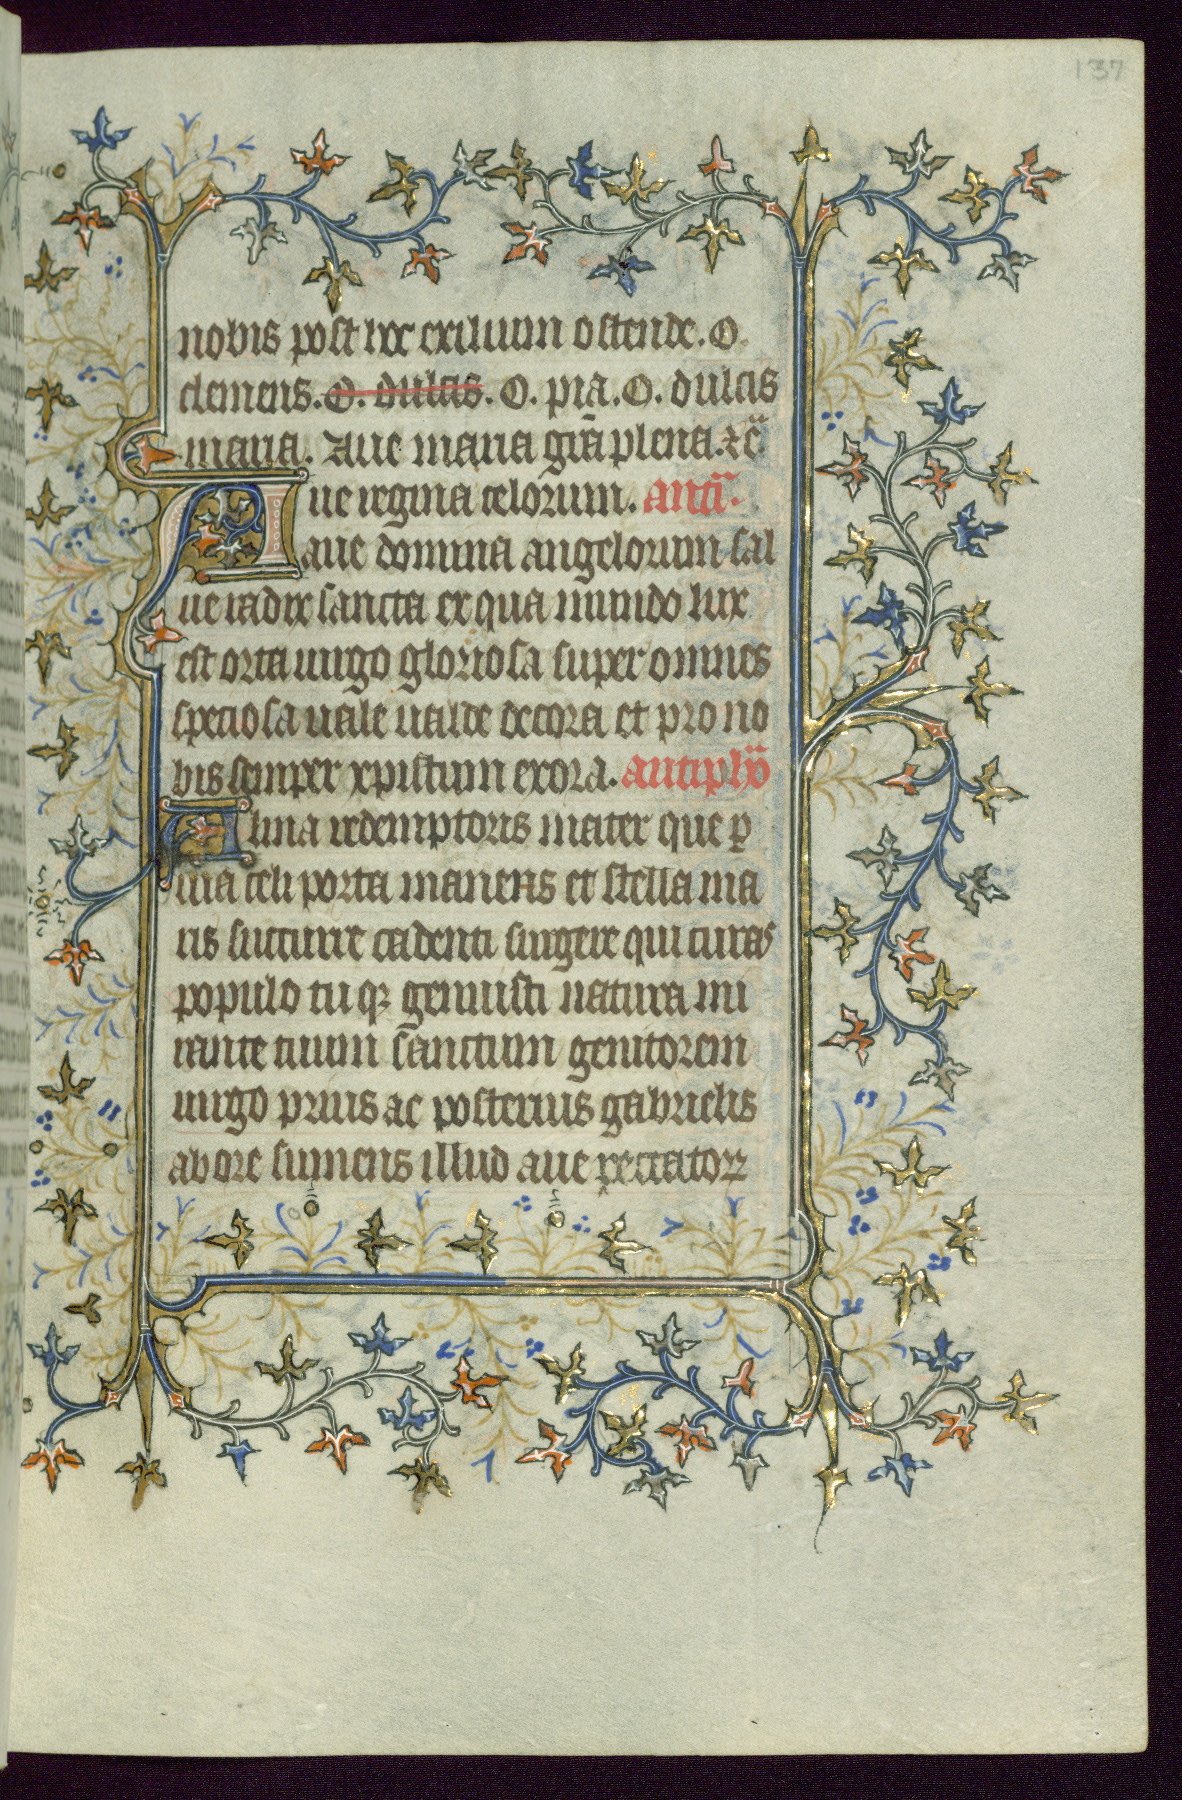 137
nobis post hoc exilium ostende. O.
clemens. O. dulcis. O. pia. O. dulcis
maria. Aue maria gr̄a plena. ⁊c̄
Aue regina celorum. antī.
aue domina angelorum sal
ue radix sancta ex qua mundo lux
est orta uirgo gloriosa super omnes
speciosa uale ualde decora et pro no
bis semper xpistum exora. antiphō
Alma redemptoris mater que ꝑ
uia celi porta manens et stella ma
ris succurre cadenti surgere qui curas
populo tu qꝫ genuisti natura mi
rante tuum sanctum genitorem
uirgo prius ac posterius gabrielis
ab ore sumens illud aue peccatoꝝ